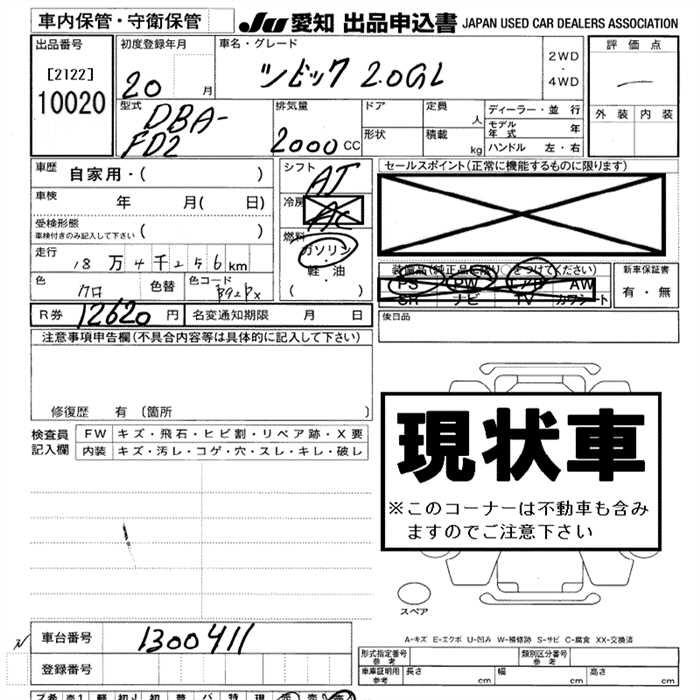 車内保管・守衛保管 JU 愛知 出品申込書 JAPAN USED CAR DEALERS ASSOCIATION
出品番号 初度登録年月 車名・グレード 評価点
[2122] 10020 20 月 シビック 2.0GL 2WD・4WD
外装 内装
型式 DBA-FD2 排気量 2000 CC ドア 形状 定員 人 積載 kg ディーラー・並行 モデル年式 年 ハンドル 左・右
車歴 自家用・( ) シフト AT セールスポイント(正常に機能するものに限ります)
車検 年 月( 日) 冷房 AC
受検形態 車検付きのみ記入して下さい ( )
燃料 ガソリン 軽・油 ( )
走行 18万4千256km 装備品(純正品に限り○をつけてください) 新車保証書
PS PW AW 有・無
SR ナビ TV カワシート
色 クロ 色替 色コード B92Px
R券 12620 円 名変通知期限 月 日 後日品
注意事項申告欄(不具合内容等は具体的に記入して下さい)
修復歴 有 [箇所 ]
現状車
※このコーナーは不動車も含み
ますのでご注意下さい
検査員記入欄 FW キズ・飛石・ヒビ割・リペア跡・X要
内装 キズ・汚レ・コゲ・穴・スレ・キレ・破レ
スペア
A-キズ E-エクボ U-凹み W-補修跡 S-サビ C-腐食 XX-交換済
車台番号 1300411
登録番号
形式指定番号 参考 類別区分番号 参考
車庫証明用 参考 長さ cm 幅 cm 高さ cm